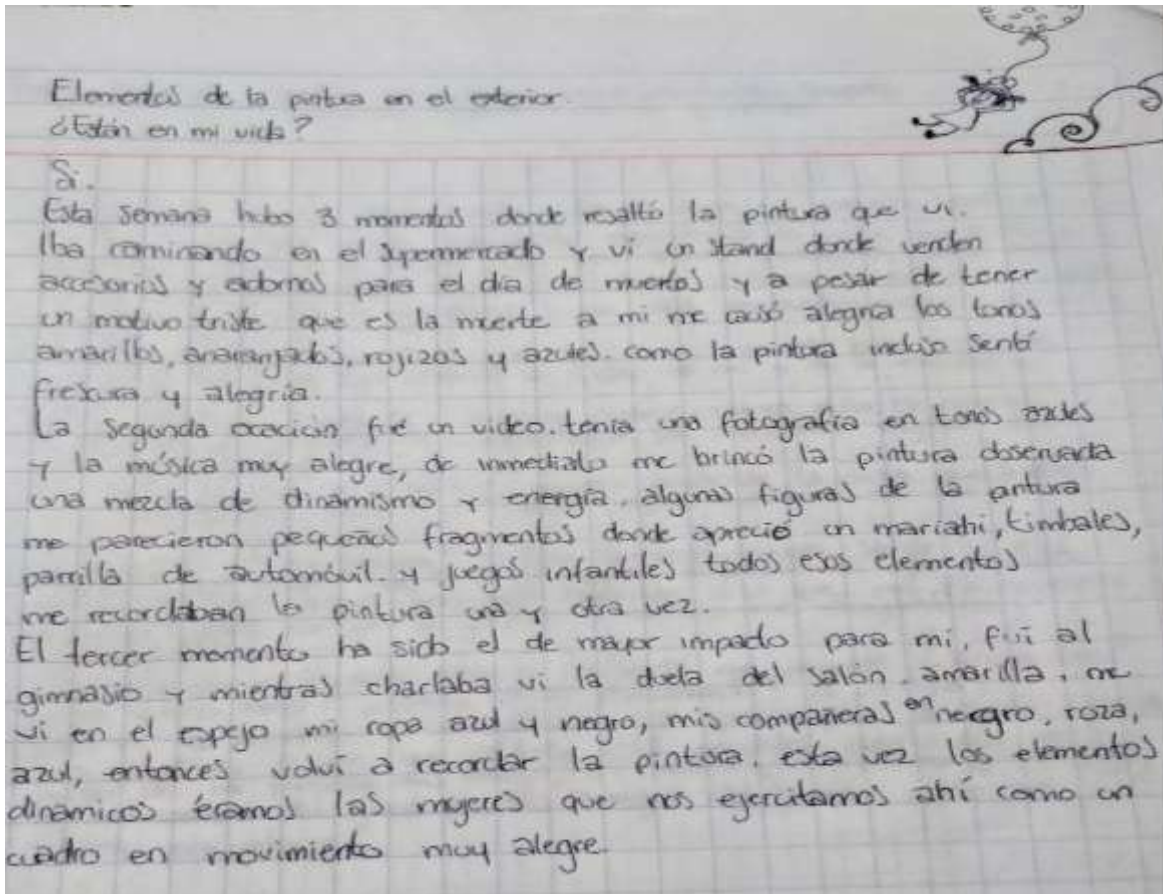 Elementos de la pintura en el exterior.
¿Están en mi vida?
Si.
Esta semana hubo 3 momentos donde resaltó la pintura que vi.
Iba caminando en el supermercado y vi un stand donde venden
accesorios y adornos para el día de muertos y a pesar de tener
un motivo triste que es la muerte a mi me causó alegria los tonos
amarillos, anaranjados, rojizos y azules. como la pintura incluso sentí
frescura y alegría.
La segunda ocacion fué un video. tenía una fotografía en tonos azules
y la música muy alegre, de inmediato me brincó la pintura observada
una mezcla de dinamismo y energía. algunas figuras de la pintura
me parecieron pequeños fragmentos donde aprecié un mariahi, timbales,
parrilla de automóvil. y juegos infantiles todos esos elementos
me recordaban la pintura una y otra vez.
El tercer momento ha sido el de mayor impacto para mi, fui al
gimnasio y mientras charlaba vi la duela del salón amarilla, me
vi en el espejo mi ropa azul y negro, mis compañeras en neegro, roza,
azul, entonces volví a recordar la pintura. esta vez los elementos
dinamicos éramos las mujeres que nos ejercitamos ahí como un
cuadro en movimiento muy alegre.